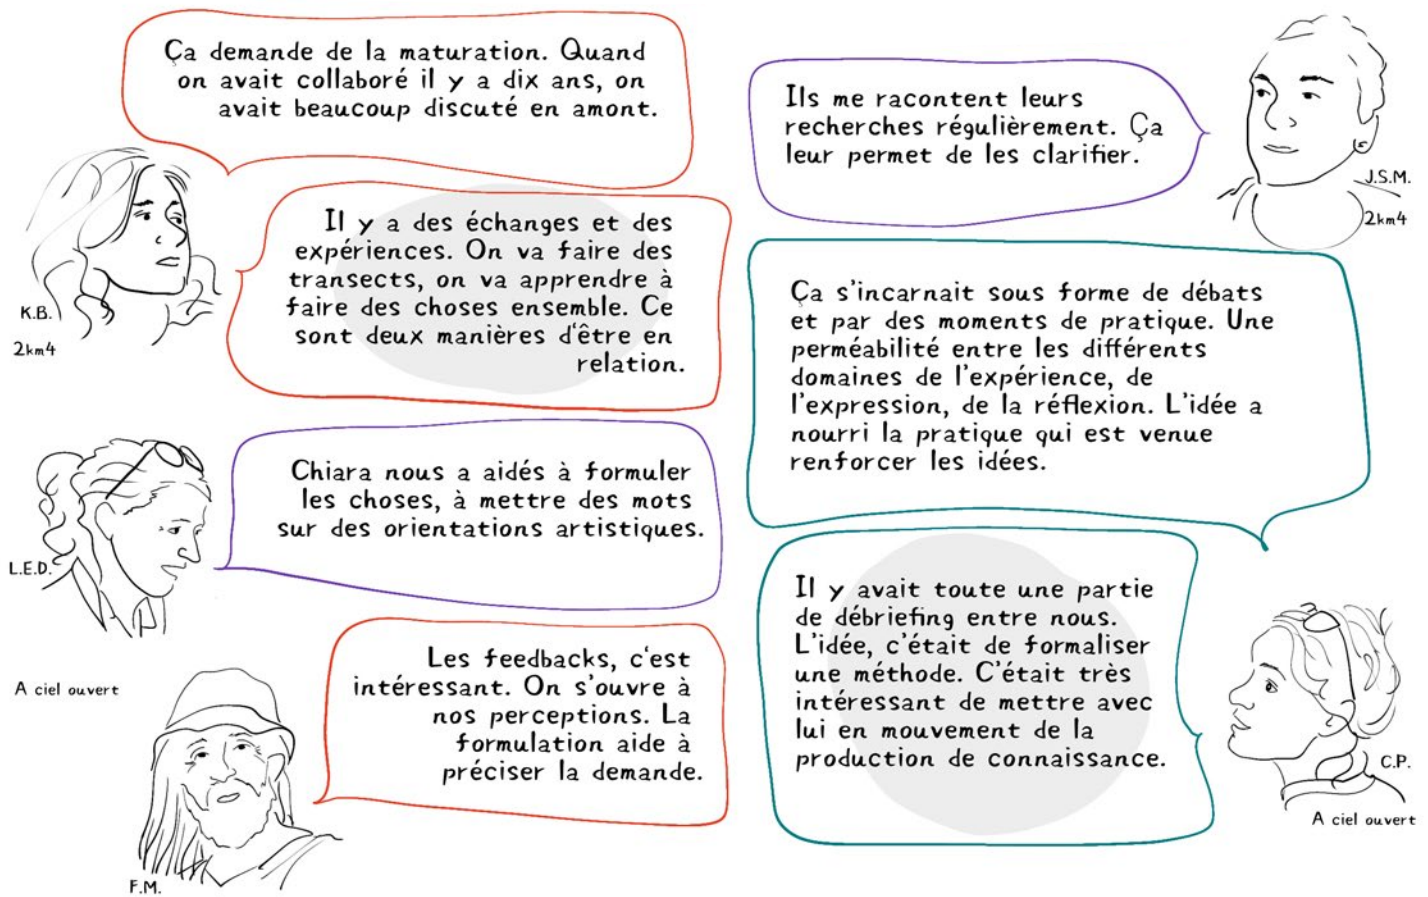 Ça demande de la maturation. Quand
on avait collaboré il y a dix ans, on
avait beaucoup discuté en amont.
Il y a des échanges et des
expériences. On va faire des
transects, on va apprendre à
faire des choses ensemble. Ce
sont deux manières d'être en
relation.
K.B.
2km4
Chiara nous a aidés à formuler
les choses, à mettre des mots
sur des orientations artistiques.
L.E.D.
A ciel ouvert
Les feedbacks, c'est
intéressant. On s'ouvre à
nos perceptions. La
formulation aide à
préciser la demande.
F.M.
Ils me racontent leurs
recherches régulièrement. Ça
leur permet de les clarifier.
J.S.M.
2km4
Ça s'incarnait sous forme de débats
et par des moments de pratique. Une
perméabilité entre les différents
domaines de l'expérience, de
l'expression, de la réflexion. L'idée a
nourri la pratique qui est venue
renforcer les idées.
Il y avait toute une partie
de débriefing entre nous.
L'idée, c'était de formaliser
une méthode. C'était très
intéressant de mettre avec
lui en mouvement de la
production de connaissance.
C.P.
A ciel ouvert